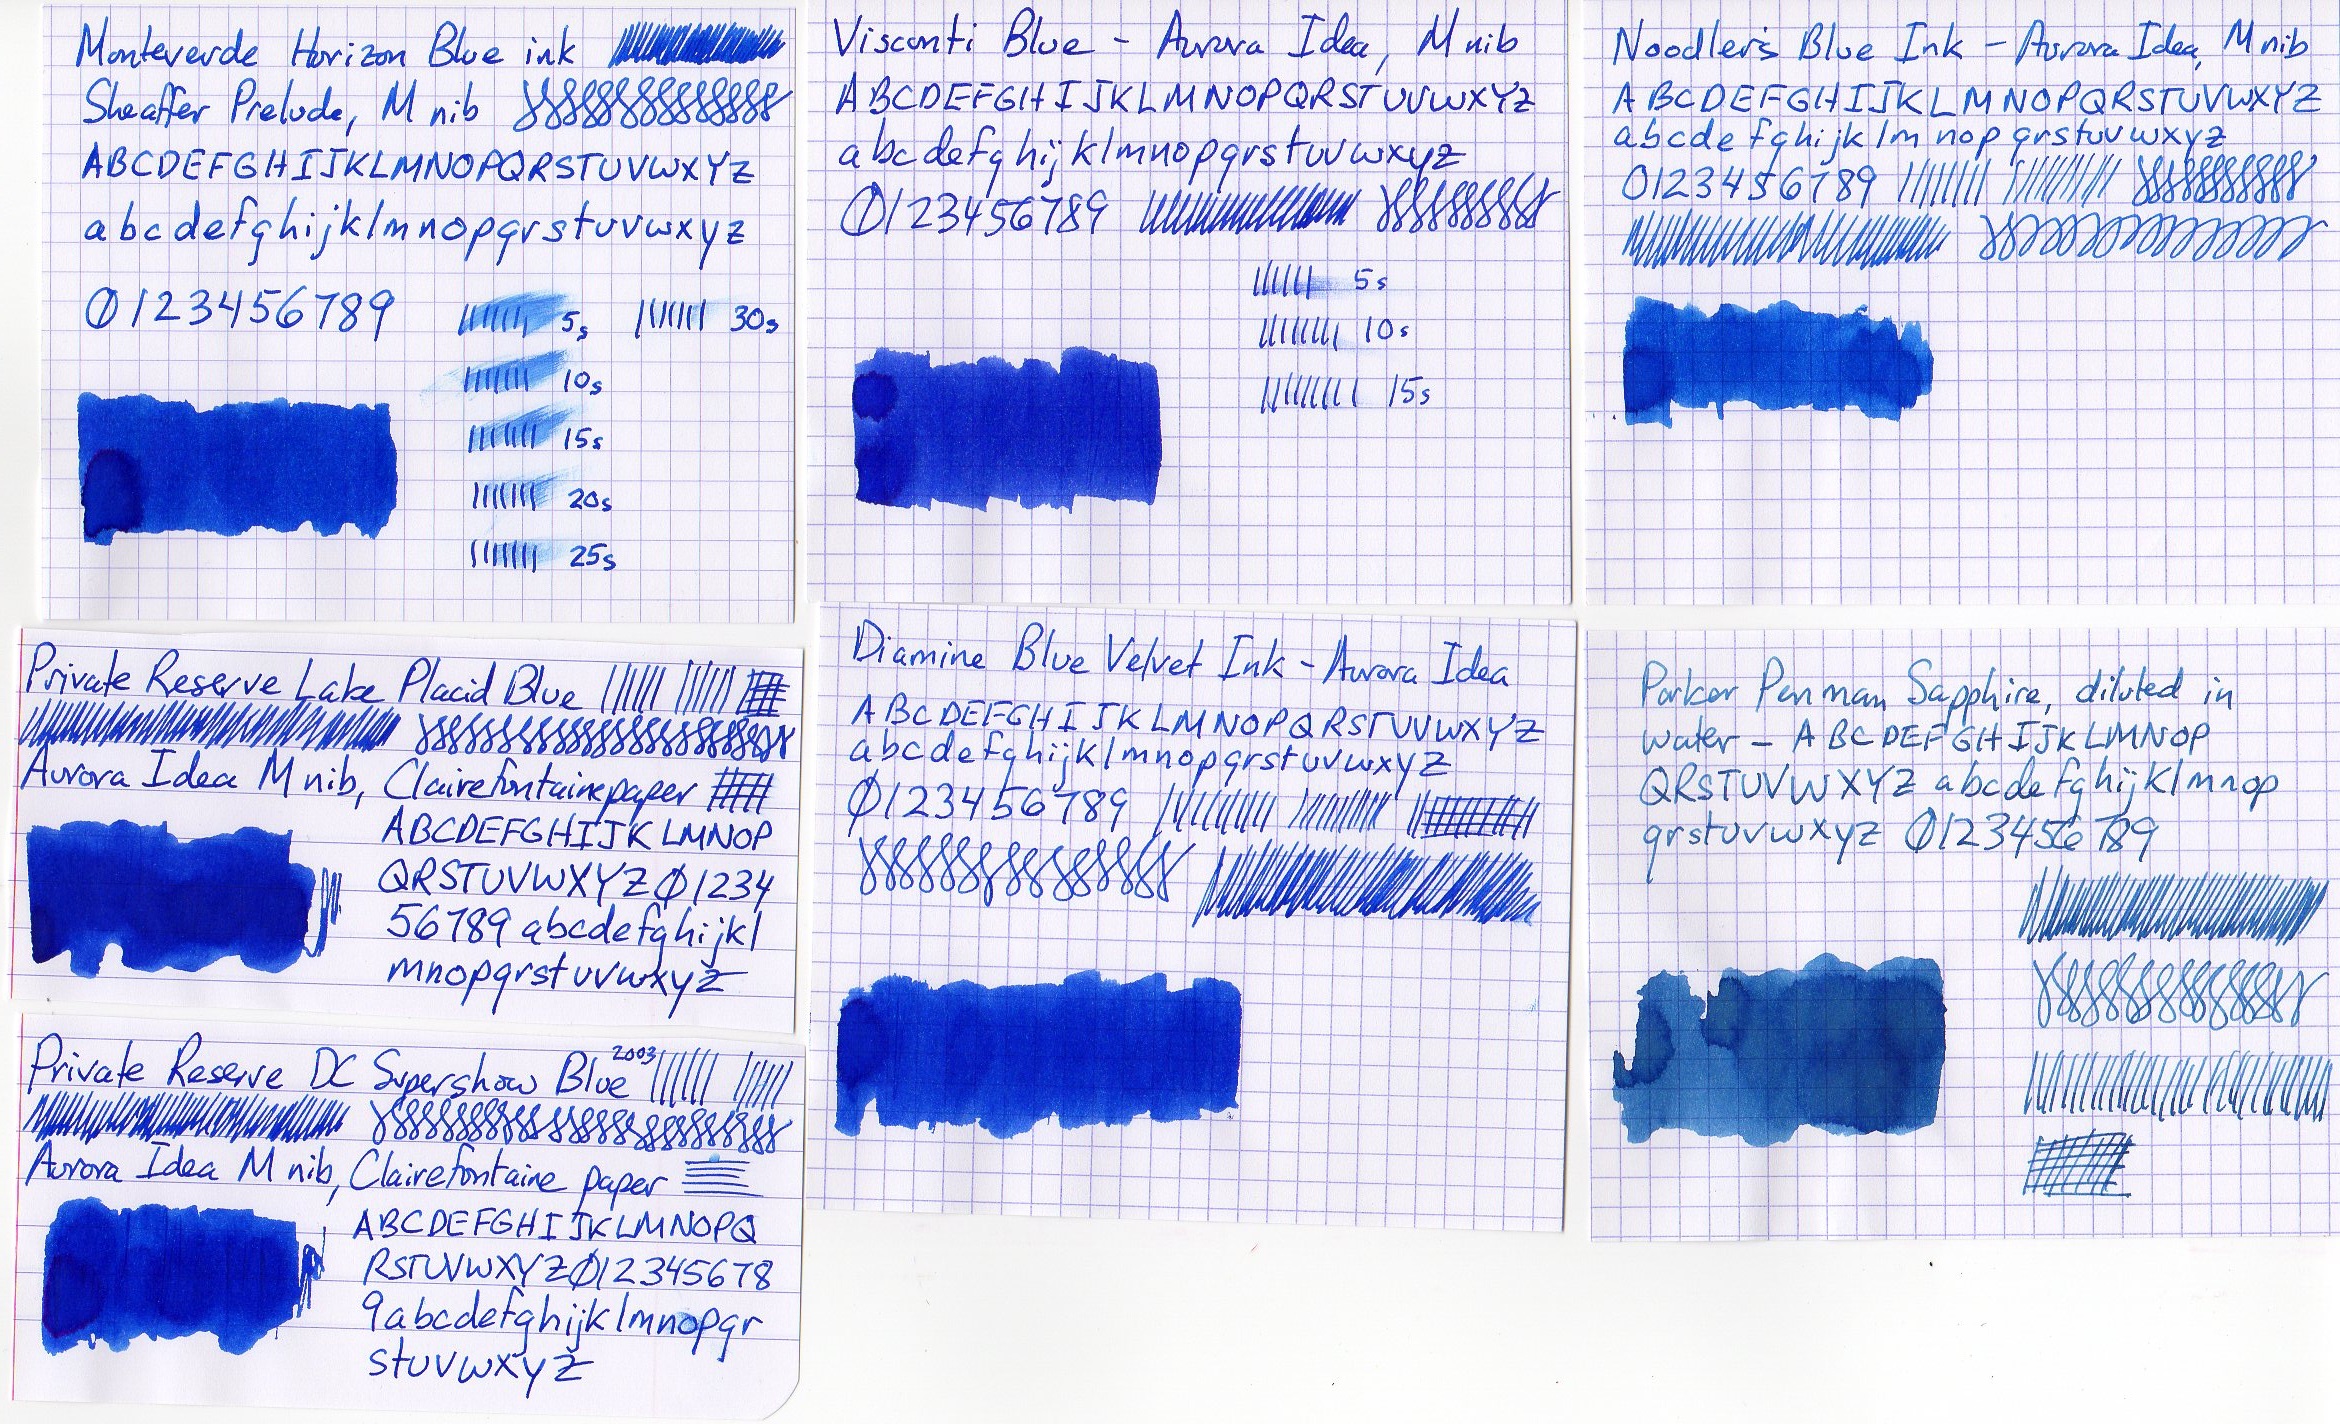 Monteverde Horizon Blue ink
Sheaffer Prelude, M nib
ABCDEFGHIJKLMNOPQRSTUVWXYZ
abcdefghijklmnopqrstuvwxyz
0123456789
5s 30s
10s
15s
20s
25s
Visconti Blue - Aurora Idea, M nib
ABCDEFGHIJKLMNOPQRSTUVWXYZ
abcdefghijklmnopqrstuvwxyz
0123456789
5s
10s
15s
Noodler's Blue Ink - Aurora Idea, M nib
ABCDEFGHIJKLMNOPQRSTUVWXYZ
abcdefghijklmnopqrstuvwxyz
0123456789
Private Reserve Lake Placid Blue
Aurora Idea M nib, Clairefontaine paper
ABCDEFGHIJKLMNOP
QRSTUVWXYZ01234
56789 abcdefghijkl
mnopqrstuvwxyz
Diamine Blue Velvet Ink - Aurora Idea
ABCDEFGHIJKLMNOPQRSTUVWXYZ
abcdefghijklmnopqrstuvwxyz
0123456789
Parker Penman Sapphire, diluted in
water - ABCDEFGHIJKLMNOP
QRSTUVWXYZ abcdefghijklmnop
qrstuvwxyz 0123456789
Private Reserve DC Supershow Blue 2003
Aurora Idea M nib, Clairefontaine paper
ABCDEFGHIJKLMNOPQ
RSTUVWXYZ012345678
9abcdefghijklmnopqr
stuvwxyz